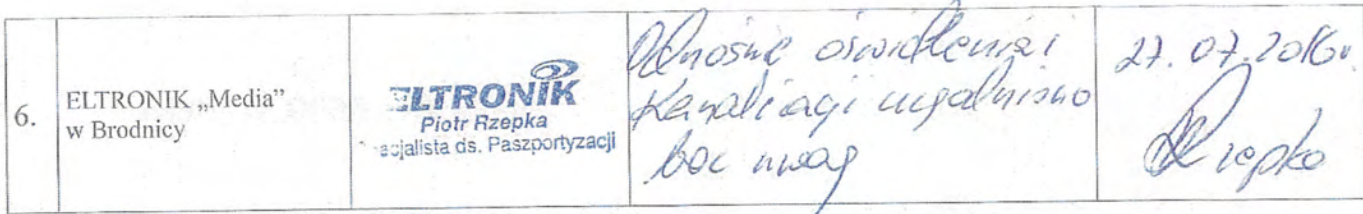 6.
ELTRONIK „Media”
w Brodnicy
ELTRONIK
Piotr Rzepka
ecjalista ds. Paszportyzacji
Odnośnie oświetlenia i
Kanalizacji uzgodniono
bez uwag
27.07.2016r.
Rzepka